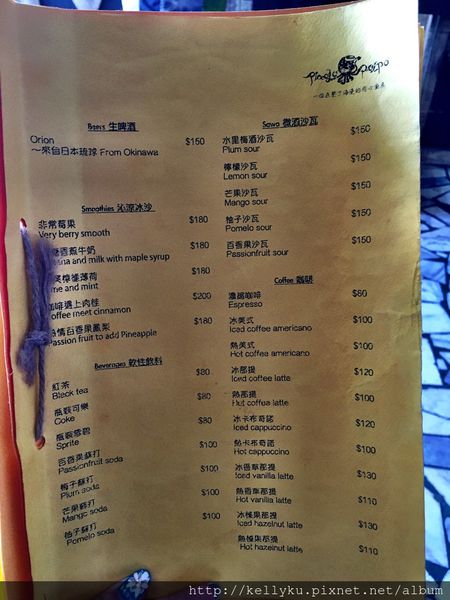 Beers 生啤酒
Orion $150
～來自日本琉球 From Okinawa
Smoothies 沁涼冰沙
非常莓果 $180
Very berry smooth
香蕉牛奶 $180
and milk with maple syrup
檬薄荷 $180
me and mint
咖啡遇上肉桂 $200
Coffee meet cinnamon
情百香果鳳梨 $180
Passion fruit to add Pineapple
Beverages 軟性飲料
紅茶 $80
Black tea
瓶裝可樂 $80
Coke
瓶裝雪碧 $80
Sprite
百香果蘇打 $100
Passionfruit soda
梅子蘇打 $100
Plum soda
芒果蘇打 $100
Mango soda
柚子蘇打 $100
Pomelo soda
Sawa 微酒沙瓦
水里梅酒沙瓦 $150
Plum sour
檸檬沙瓦 $150
Lemon sour
芒果沙瓦 $150
Mango sour
柚子沙瓦 $150
Pomelo sour
百香果沙瓦 $150
Passionfruit sour
Coffee 咖啡
濃縮咖啡 $80
Espresso
冰美式 $100
Iced coffee americano
熱美式 $100
Hot coffee americano
冰那提 $120
Iced coffee latte
熱那提 $100
Hot coffee latte
冰卡布奇諾 $120
Iced cappuccino
熱卡布奇諾 $100
Hot cappuccino
冰香草那提 $130
Iced vanilla latte
熱香草那提 $110
Hot vanilla latte
冰榛果那提 $130
Iced hazelnut latte
熱榛果那提 $110
Hot hazelnut latte
http://kellyku.pixnet.net/album